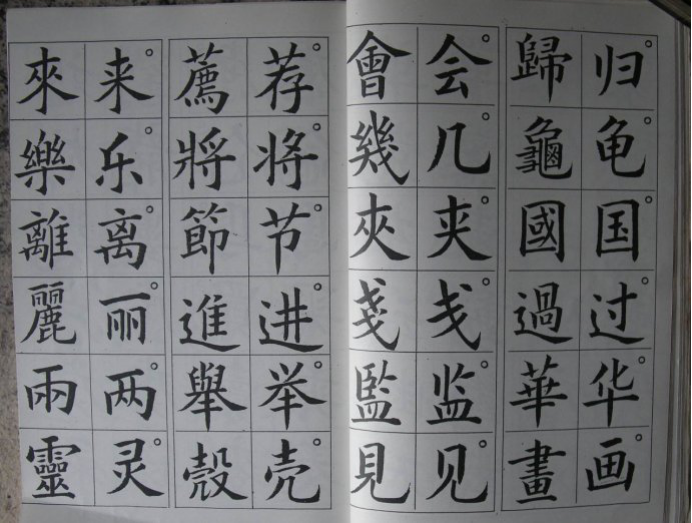 归龟国过华画
歸龜國過華畫
会几夹戋监见
會幾夾戔監見
荐将节进举壳
薦將節進舉殼
来乐离丽两灵
來樂離麗兩靈